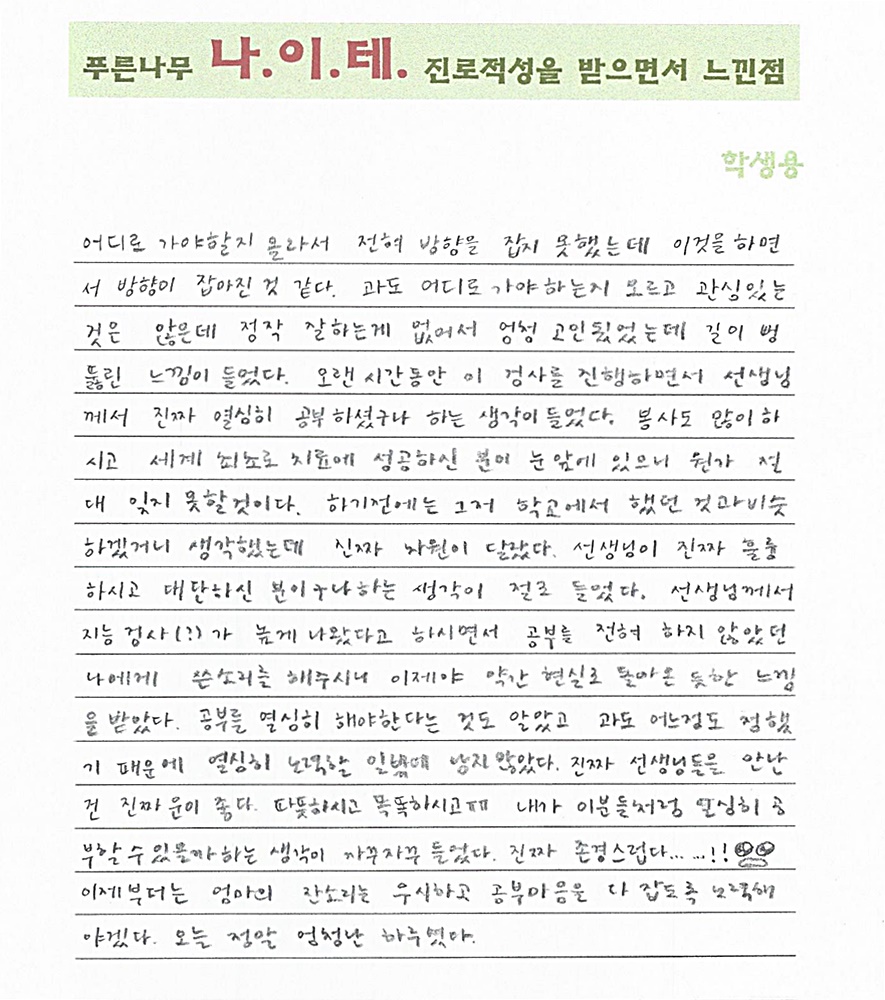 푸른나무 나.이.테. 진로적성을 받으면서 느낀점
학생용
어디로 가야할지 몰라서 전혀 방향을 잡지 못했는데 이것을 하면
서 방향이 잡아진 것 같다. 과도 어디로 가야하는지 모르고 관심있는
것은 많은데 정작 잘하는게 없어서 엄청 고민됬었는데 길이 뻥
뚫린 느낌이 들었다. 오랜 시간동안 이 검사를 진행하면서 선생님
께서 진짜 열심히 공부 하셨구나 하는 생각이 들었다. 봉사도 많이 하
시고 세계 최초로 치료에 성공하신 분이 눈앞에 있으니 뭔가 절
대 잊지 못할것이다. 하기전에는 그저 학교에서 했던 것과 비슷
하겠거니 생각했는데 진짜 차원이 달랐다. 선생님이 진짜 훌륭
하시고 대단하신 분이구나 하는 생각이 절로 들었다. 선생님께서
지능 검사(?)가 높게 나왔다고 하시면서 공부를 전혀 하지 않았던
나에게 쓴소리를 해주시니 이제야 약간 현실로 돌아온 듯한 느낌
을 받았다. 공부를 열심히 해야한다는 것도 알았고 과도 어느정도 정했
기 때문에 열심히 노력할 일밖에 남지 않았다. 진짜 선생님들을 만난
건 진짜 운이 좋다. 따뜻하시고 똑똑하시고ㅠㅠ 내가 이분들처럼 열심히 공
부할 수 있을까 하는 생각이 자꾸자꾸 들었다. 진짜 존경스럽다... ...!!
이제부터는 엄마의 잔소리는 무시하고 공부마음을 다 잡도록 노력해
야겠다. 오늘 정말 엄청난 하루였다.